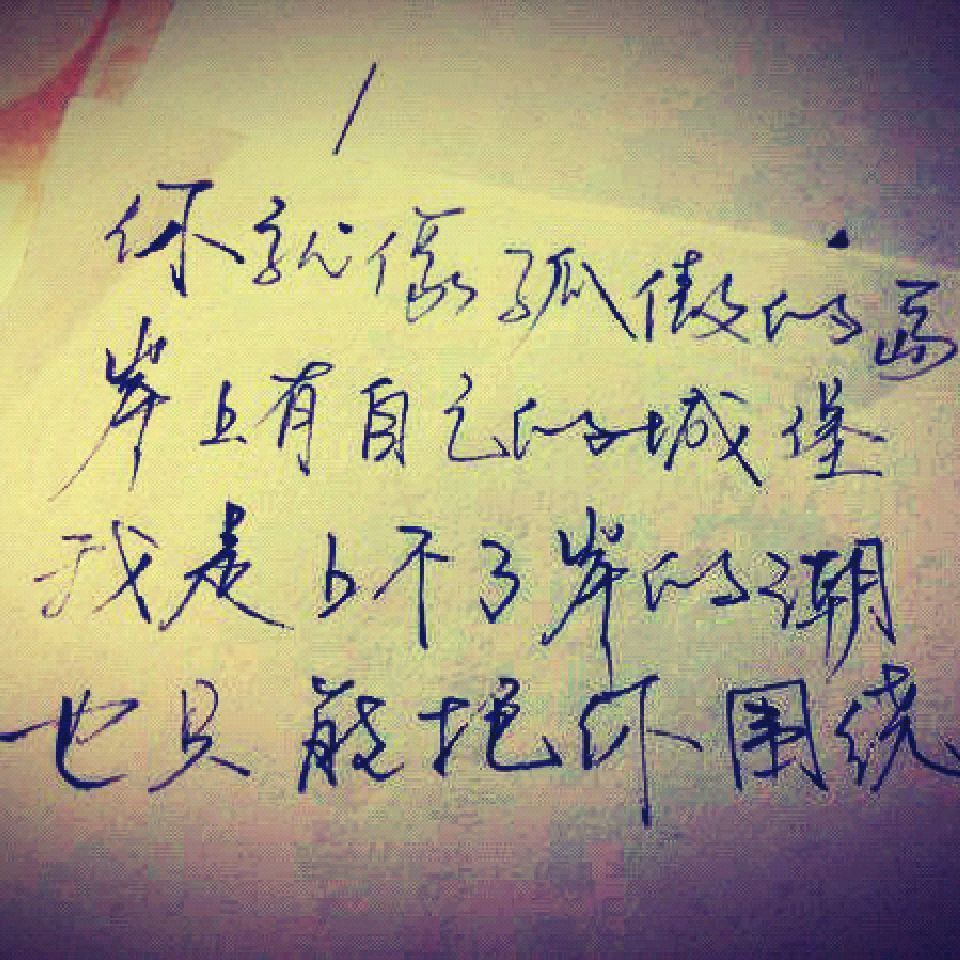 你就像孤傲的岛
岸上有自己的城堡
我是上不了岸的潮
也只能把你围绕